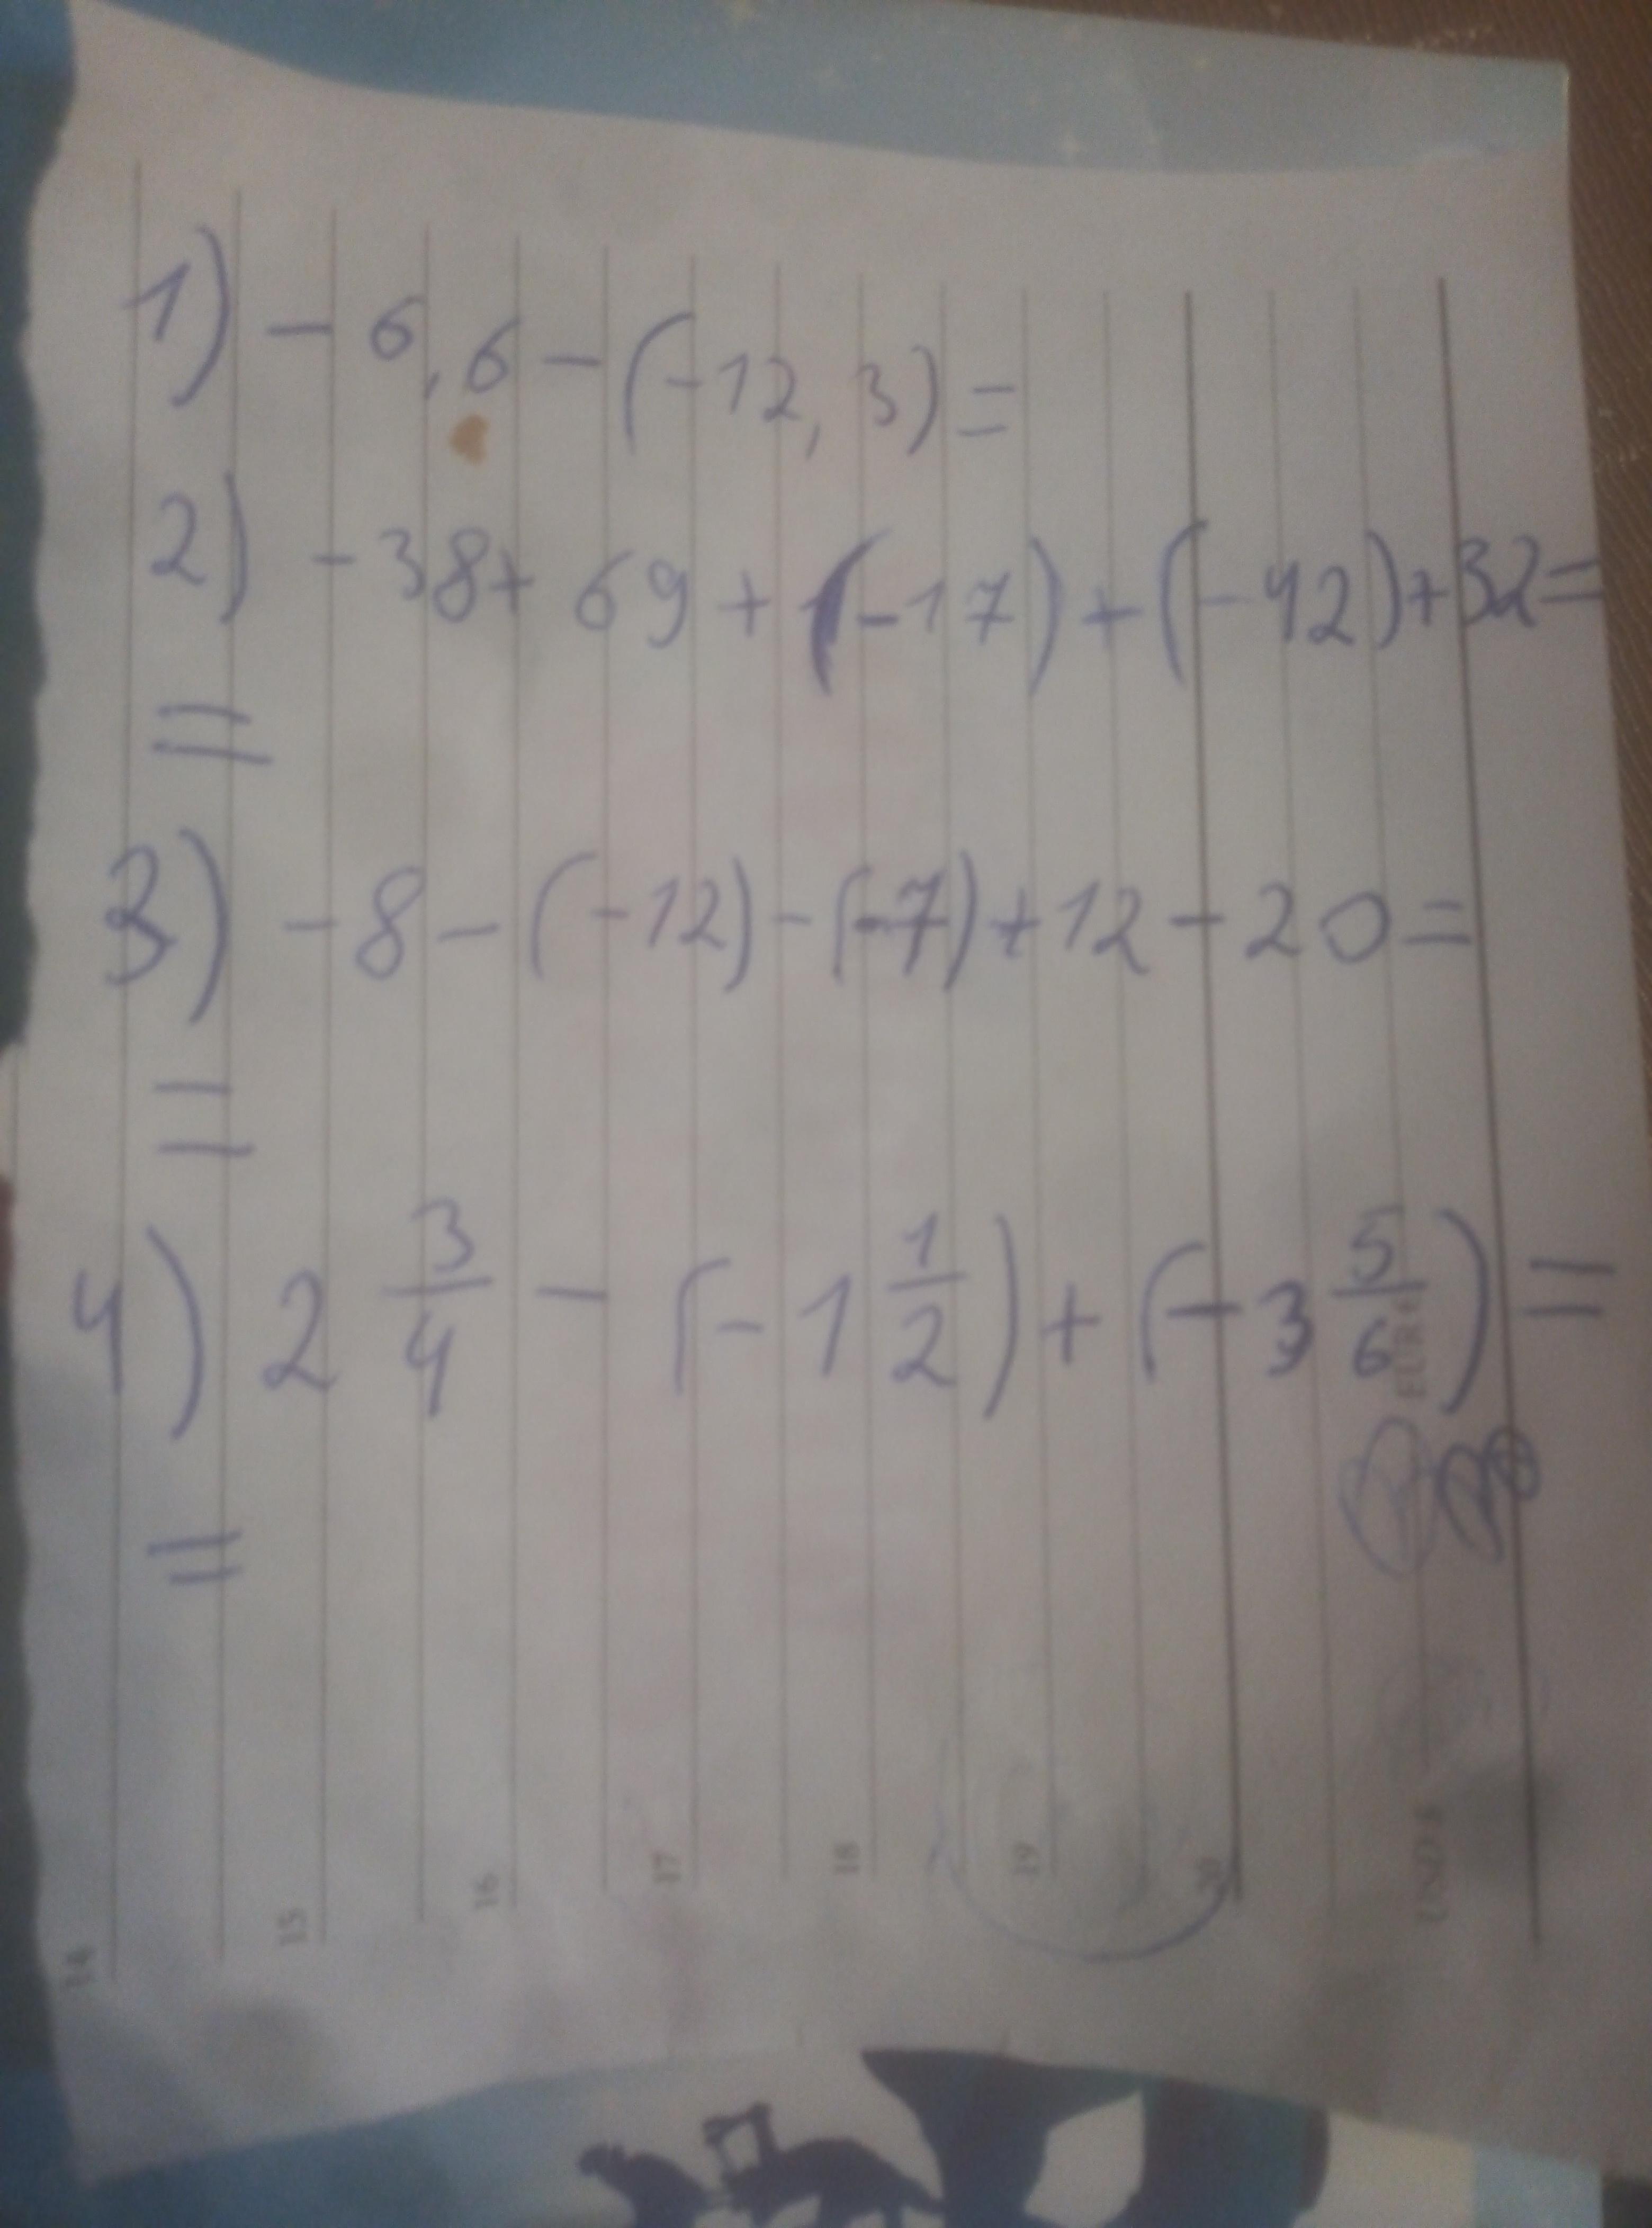 1) - 6,6 - (-12,3) =
2) - 38 + 69 + (-17) + (-42) + 32 =
=
3) - 8 - (-12) - (-7) + 12 - 20 =
=
4) 2 3/4 - (-1 1/2) + (-3 5/6) =
=
14
15
16
17
18
19
20